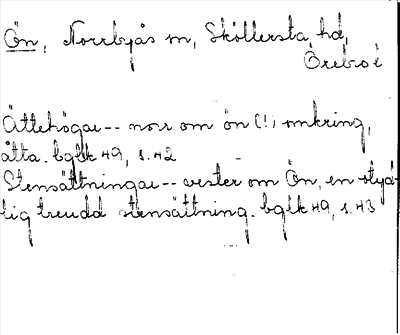 Ön, Norrbyås sn, Sköllersta hd,
Örebro l
Ättehögar -- norr om ön (!) omkring,
åtta. bglk 49, s. 42
Stensättningar -- vester om Ön, en otyd-
lig treudd stensättning. bglk 49, s. 43